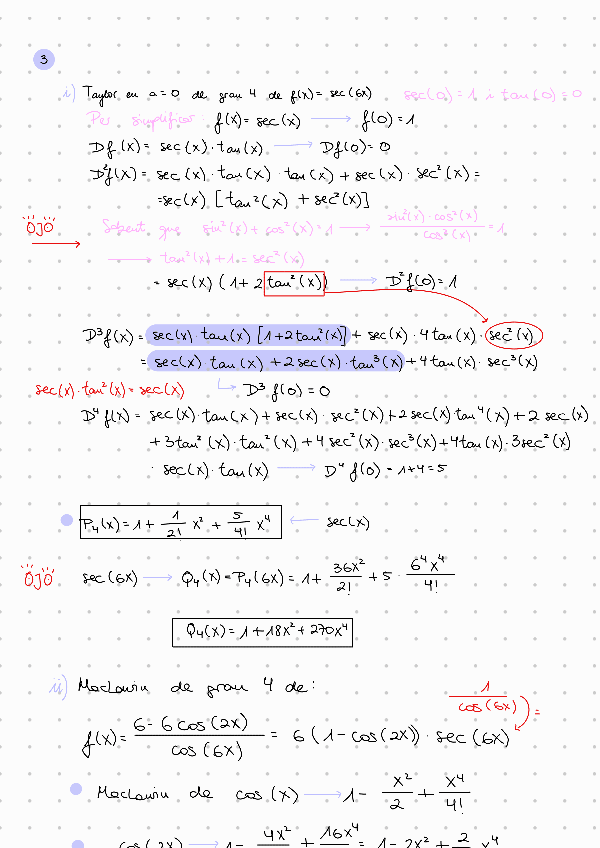 3
i) Taylor en a=0 de grau 4 de f(x)=sec(6x) sec(0)=1 i tan(0)=0
Per simplificar: f(x)=sec(x) → f(0)=1
Df(x)=sec(x)·tan(x) → Df(0)=0
D²f(x)=sec(x)·tan(x)·tan(x)+sec(x)·sec²(x)=
=sec(x)[tan²(x)+sec²(x)]
OJO
Sabent que sin²(x)+cos²(x)=1 → sin²(x)·cos²(x)/cos²(x)=1
→ tan²(x)+1=sec²(x)
=sec(x)(1+2tan²(x)) → D²f(0)=1
D³f(x)=sec(x)·tan(x)[1+2tan²(x)]+sec(x)·4tan(x)·sec²(x)
=sec(x)·tan(x)+2sec(x)·tan³(x)+4tan(x)·sec³(x)
sec(x)·tan²(x)=sec(x) → D³f(0)=0
D⁴f(x)=sec(x)·tan(x)+sec(x)·sec²(x)+2sec(x)tan⁴(x)+2sec(x)
+3tan²(x)·tan²(x)+4sec²(x)·sec³(x)+4tan(x)·3sec²(x)
·sec(x)·tan(x) → D⁴f(0)=1+4=5
P₄(x)=1+1/2! x²+5/4! x⁴ ← sec(x)
OJO sec(6x) → Q₄(x)=P₄(6x)=1+36x²/2!+5·6⁴x⁴/4!
Q₄(x)=1+18x²+270x⁴
ii) Maclaurin de grau 4 de:
1/cos(6x) =
f(x)=6-6cos(2x)/cos(6x)=6(1-cos(2x))·sec(6x)
Maclaurin de cos(x) → 1-x²/2+x⁴/4!
cos(2x) → 1-4x²/ +16x⁴/ =1-2x²+2/ x⁴